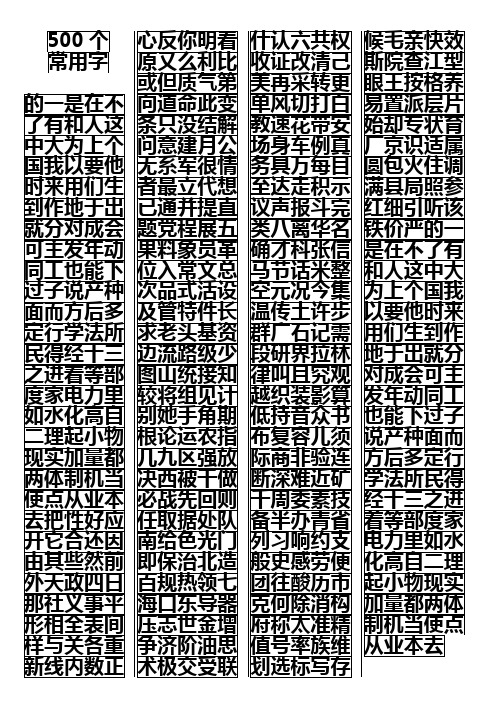 500 个
常用字
的一是在不
了有和人这
中大为上个
国我以要他
时来用们生
到作地于出
就分对成会
可主发年动
同工也能下
过子说产种
面而方后多
定行学法所
民得经十三
之进着等部
度家电力里
如水化高自
二理起小物
现实加量都
两体制机当
使点从业本
去把性好应
开它合还因
由其些然前
外天政四日
那社义事平
形相全表间
样与关各重
新线内数正
心反你明看
原又么利比
或但质气第
向道命此变
条只没结解
问意建月公
无系军很情
者最立代想
已通并提直
题党程展五
果料象员革
位入常文总
次品式活设
及管特件长
求老头基资
边流路级少
图山统接知
较将组见计
别她手角期
根论运农指
几九区强放
决西被干做
必战先回则
任取据处队
南给色光门
即保治北造
百规热领七
海口东导器
压志世金增
争济阶油思
术极交受联
什认六共权
收证改清己
美再采转更
单风切打白
教速花带安
场身车例真
务具万每目
至达走积示
议声报斗完
类八离华名
确才科张信
马节话米整
空元况今集
温传土许步
群广石记需
段研界拉林
律叫且究观
越织装影算
低持音众书
布复容儿须
际商非验连
断深难近矿
千周委素技
备半办青省
列习响约支
般史感劳便
团往酸历市
克何除消构
府称太准精
值号率族维
划选标写存
候毛亲快效
斯院查江型
眼王按格养
易置派层片
始却专状育
厂京识适属
圆包火住调
满县局照参
红细引听该
铁价严的一
是在不了有
和人这中大
为上个国我
以要他时来
用们生到作
地于出就分
对成会可主
发年动同工
也能下过子
说产种面而
方后多定行
学法所民得
经十三之进
着等部度家
电力里如水
化高自二理
起小物现实
加量都两体
制机当使点
从业本去